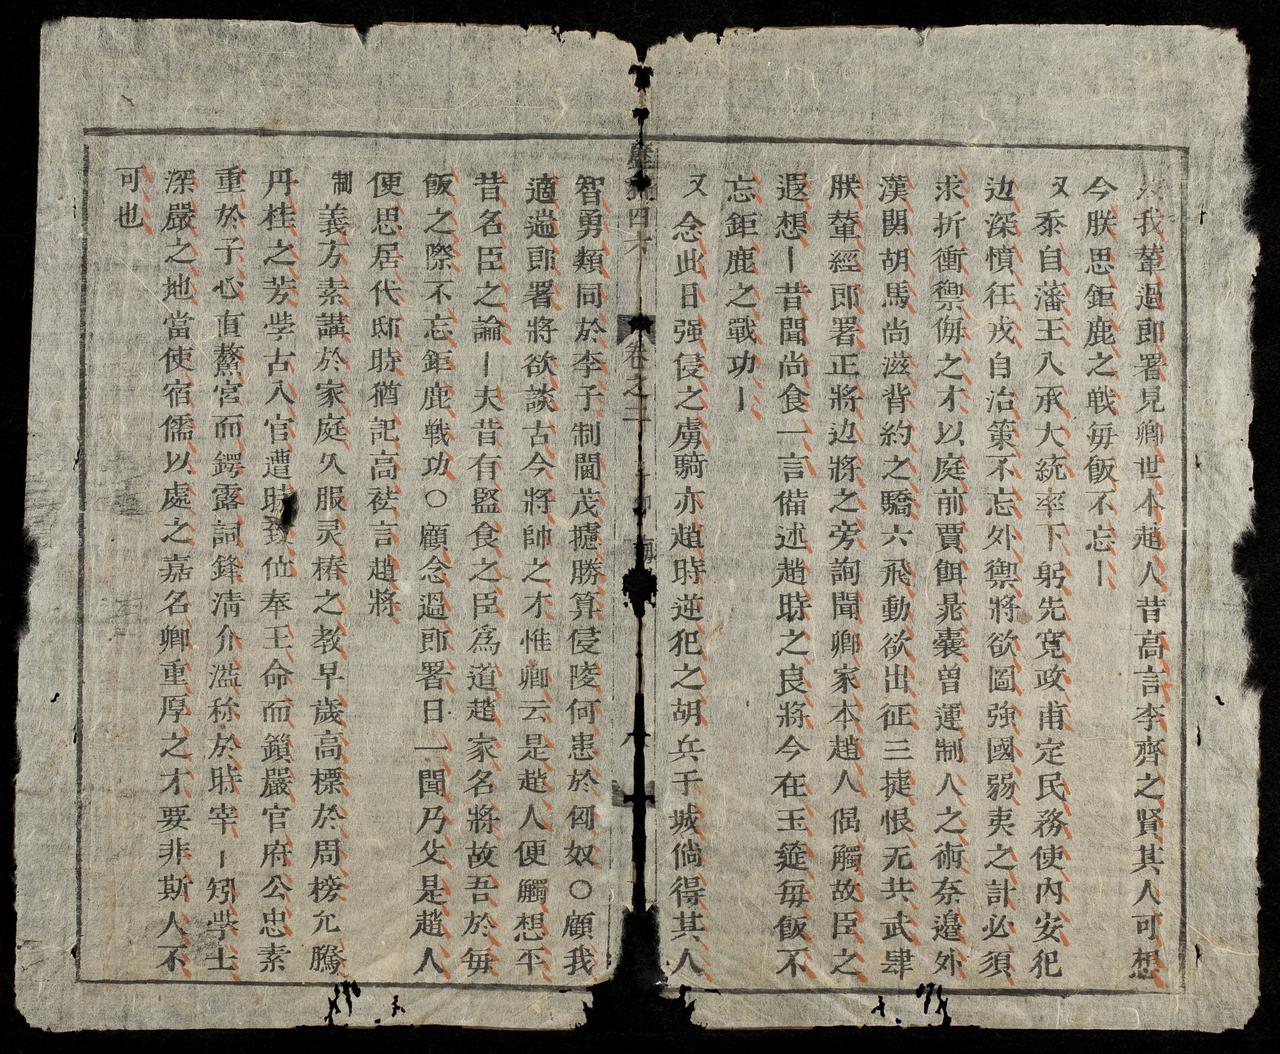 我輦過郎署見卿世本趙人昔高言李齊之賢其人可想
今朕思鉅鹿之戦毎飯不忘｜
又 忝自藩王入承大統率下躬先寛政甫定民務使内安犯
边深憤在戎自治策不忘外禦將欲圖強國弱夷之計必須
求折衝禦侮之才以庭前賈餌晁囊曽運制人之術奈邉外
漢関胡馬尚滋背約之驕六飛動欲出征三捷恨无共武肆
朕輦經郎署正將边將之旁詢聞卿家本趙人偶觸故臣之
遐想｜昔聞尚食一言備述趙時之良將今在玉筵毎飯不
忘鉅鹿之戰功｜
又 念此日强侵之虜騎亦趙時逆犯之胡兵干城倘得其人
四六 卷之二
智勇類同於李子制閫茂攄勝算侵陵何患於匈奴〇顧我
適過郎署將欲談古今將帥之才惟卿云是趙人便觸想平
昔名臣之論｜夫昔有監食之臣爲道趙家名將故吾於毎
飯之際不忘鉅鹿戦功〇顧念過郎署日一聞乃父是趙人
便思居代邸時猶記高祛言趙將
制 義方素講於家庭久服灵椿之教早歲高標於周榜允騰
丹桂之芳斈古入官遭時致位奉王命而鎖嚴官府公忠素
重於予心直鰲宮而鍔露詞鋒清介滥称於時宰｜矧斈士
深嚴之地當使宿儒以處之嘉名卿重厚之才要非斯人不
可也